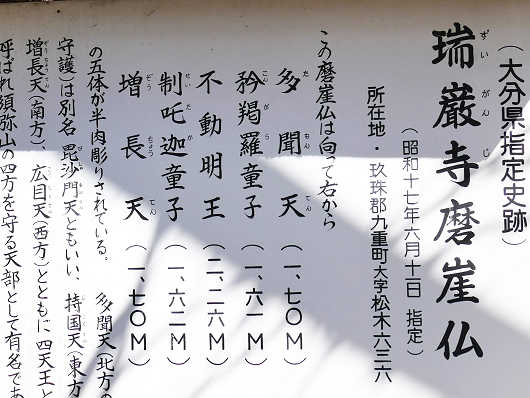 （大分県指定史跡）
瑞巌寺磨崖仏
ずいがんじ
（昭和十七年六月十二日 指定）
所在地・玖珠郡九重町大字松木六三六
この磨崖仏は向って右から
多聞天（一、七〇M）
たもんてん
矜羯羅童子（一、六一M）
こんがら
不動明王（二、二六M）
制吒迦童子（一、六二M）
せいたか
増長天（一、七〇M）
ぞうちょうてん
の五体が半肉彫りされている。 多聞天（北方の
守護）は別名毘沙門天ともいい、持国天（東方
増長天（南方）、広目天（西方）とともに四天王と
呼ばれ須弥山の四方を守る天部として有名であ